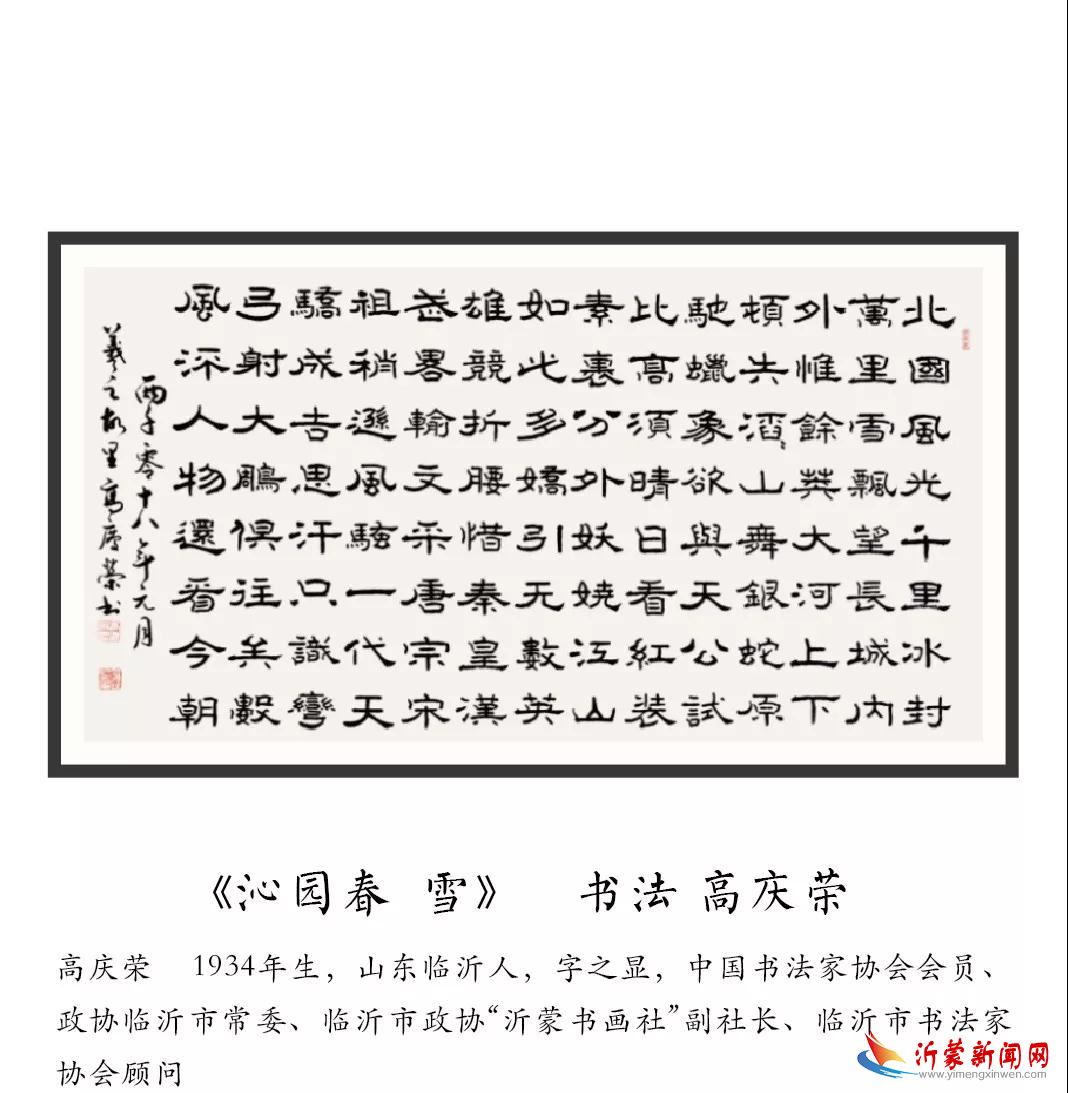 北國風光千里冰封
萬里雪飄望長城內
外惟餘莽大河上下
頓失滔〻山舞銀蛇原
馳蠟象欲與天公試
比高須晴日看紅裝
素裹分外妖嬈江山
如此多嬌引无數英
雄競折腰惜秦皇漢
武畧輸文采唐宗宋
祖稍遜風騷一代天
驕成吉思汗只識彎
弓射大鵰俱往矣數
風流人物還看今朝
兩千零十八年元月
羲之故里高慶榮书
《沁园春 雪》 书法 高庆荣
高庆荣 1934年生，山东临沂人，字之显，中国书法家协会会员、
政协临沂市常委、临沂市政协“沂蒙书画社”副社长、临沂市书法家
协会顾问
沂蒙新闻网
www.yimengxinwen.com